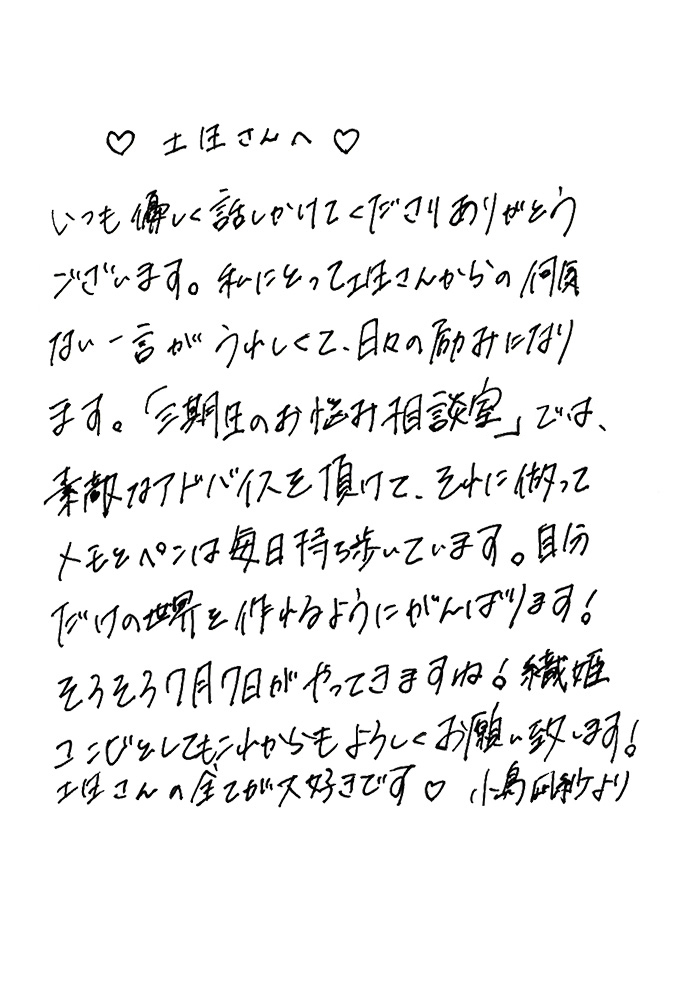 ♡ 土生さんへ ♡
いつも優しく話しかけてくださりありがとう
ございます。私にとって土生さんからの何気
ない一言がうれしくて、日々の励みになり
ます。「三期生のお悩み相談室」では、
素敵なアドバイスを頂けて、それに倣って
メモとペンは毎日持ち歩いています。自分
だけの世界を作れるようにがんばります!
そろそろ7月7日がやってきますね!織姫
コンビとしてもこれからもよろしくお願い致します!
土生さんの全てが大好きです♡ 小島凪紗より